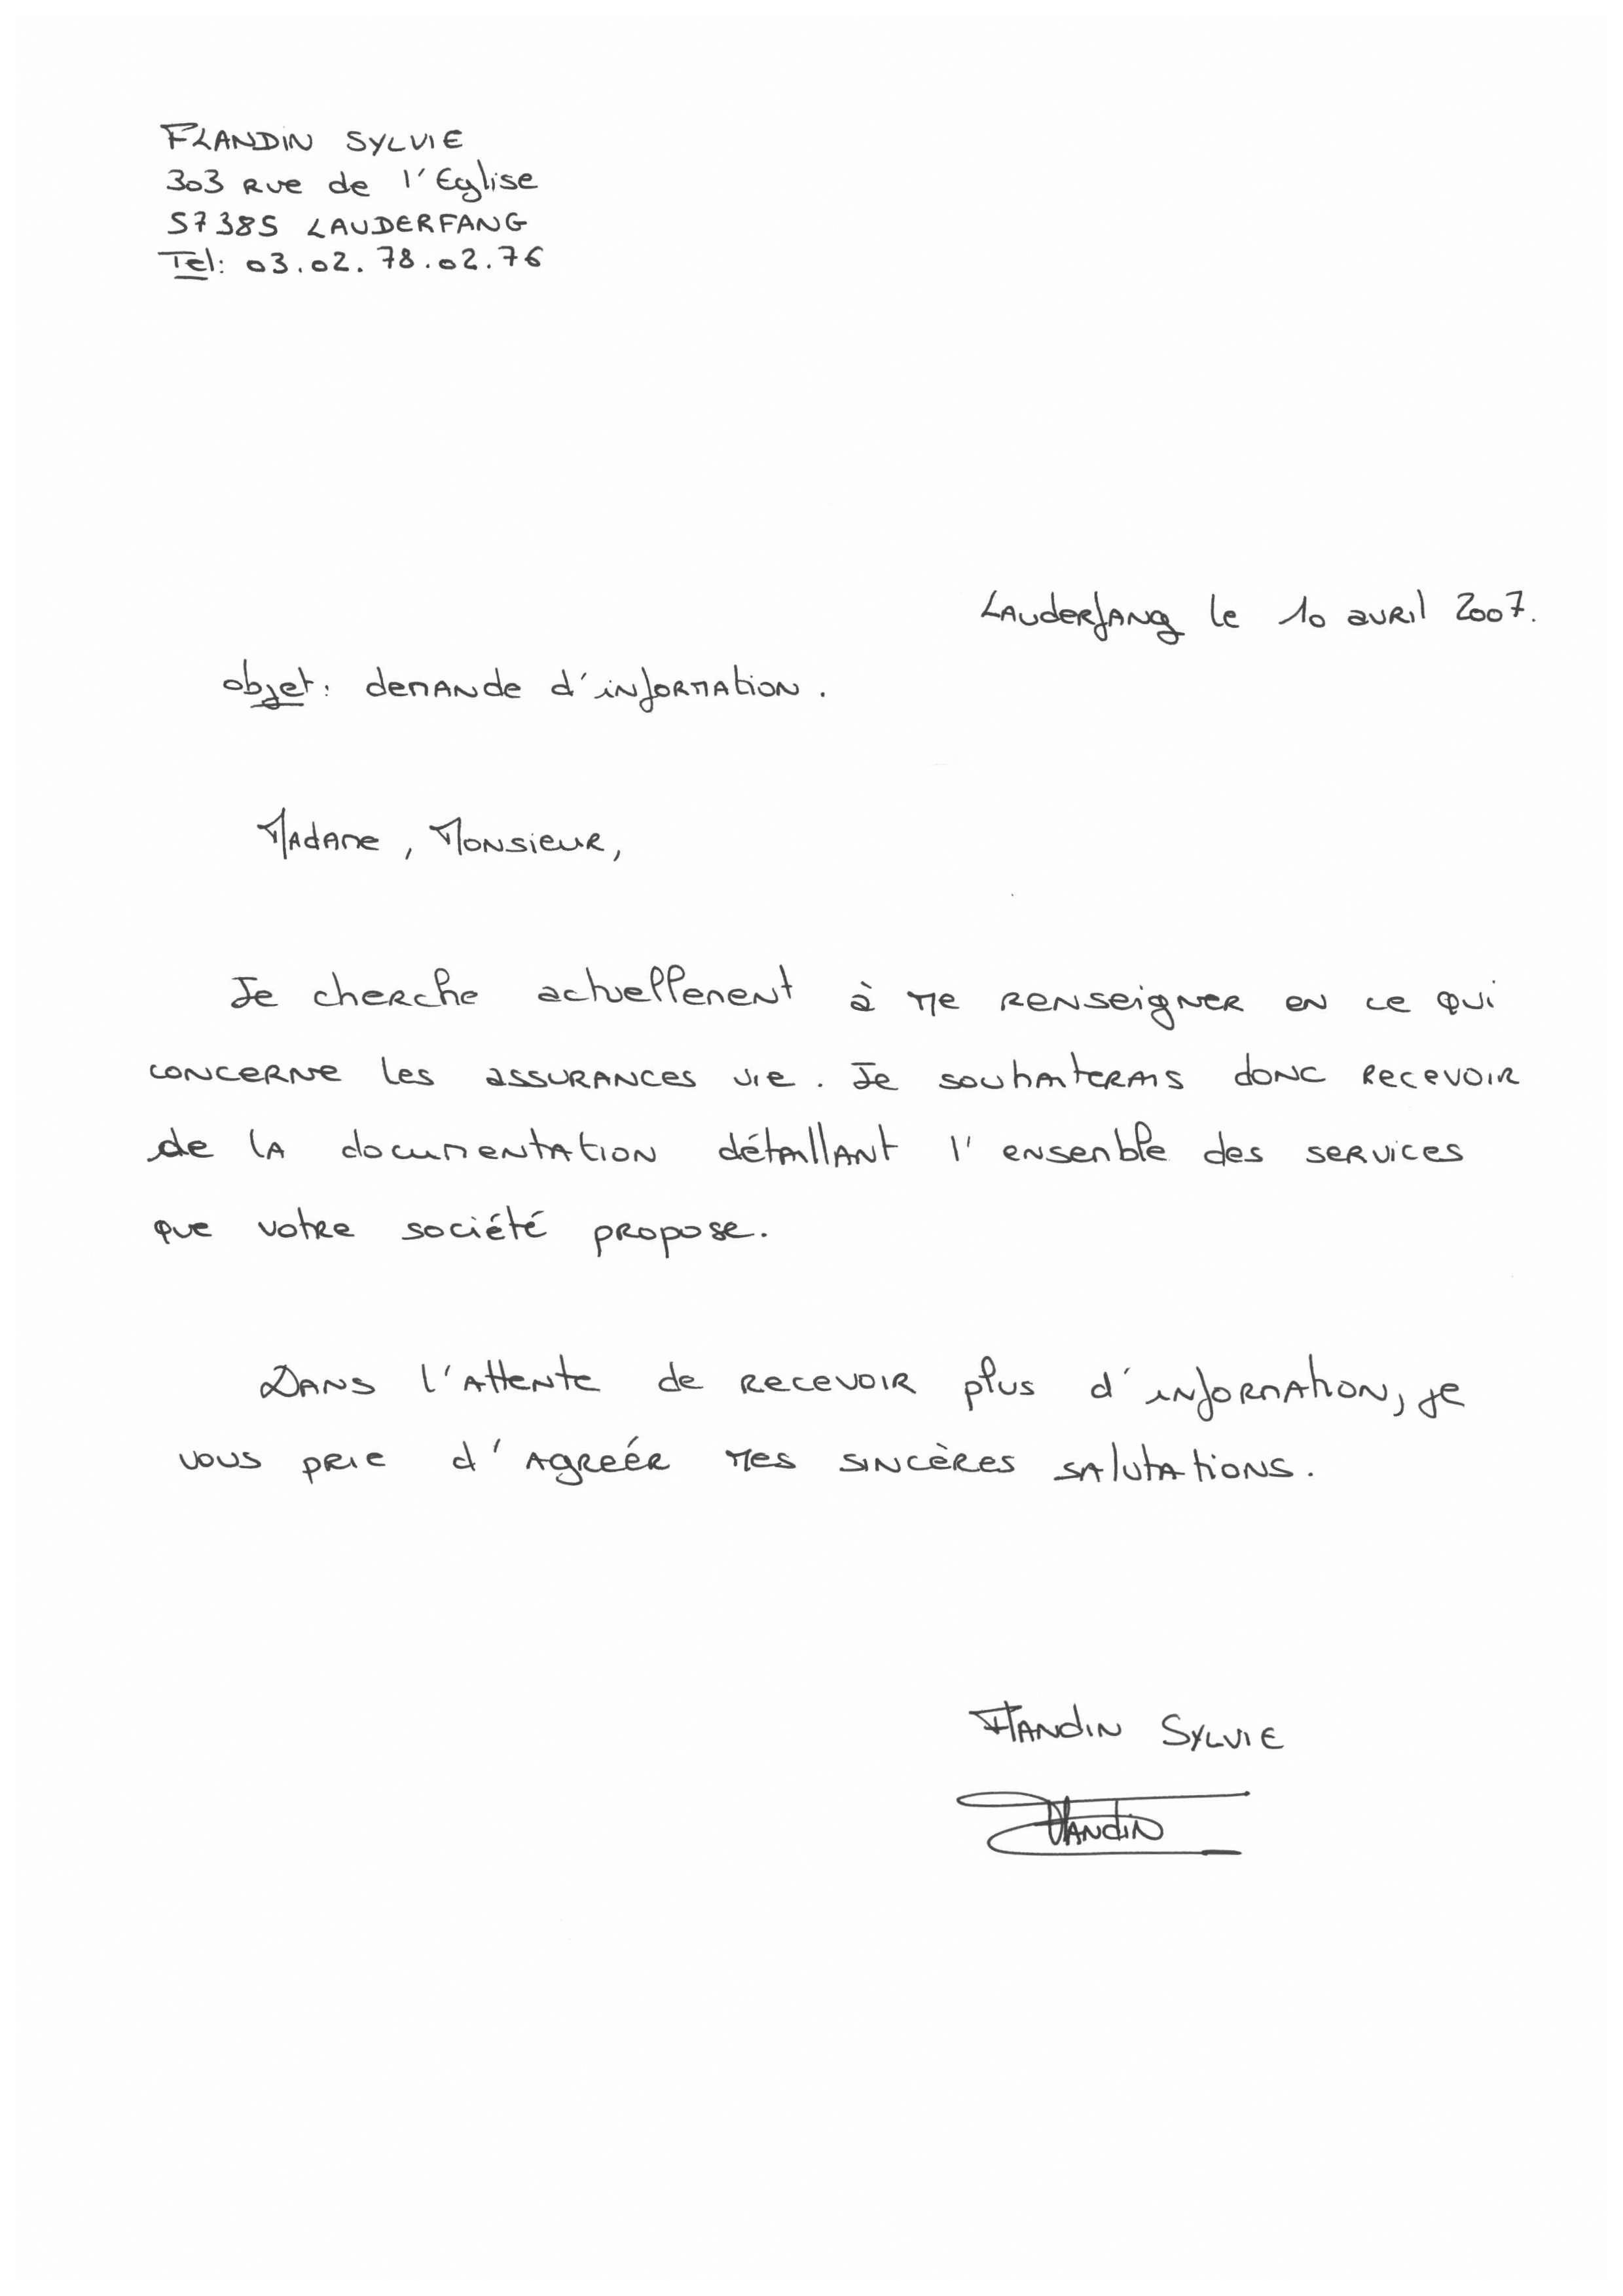 FLANDIN SYLVIE
303 Rue de l'Eglise
57385 LAUDERFANG
Tel: 03.02.78.02.76
Lauderfang le 10 avril 2007.
objet: demande d'information.
Madame, Monsieur,
Je cherche actuellement à me renseigner en ce qui
concerne les assurances vie. Je souhaiterais donc recevoir
de la documentation détaillant l'ensemble des services
que votre société propose.
Dans l'attente de recevoir plus d'information, je
vous prie d'agreér mes sincères salutations.
Flandin Sylvie
Flandin